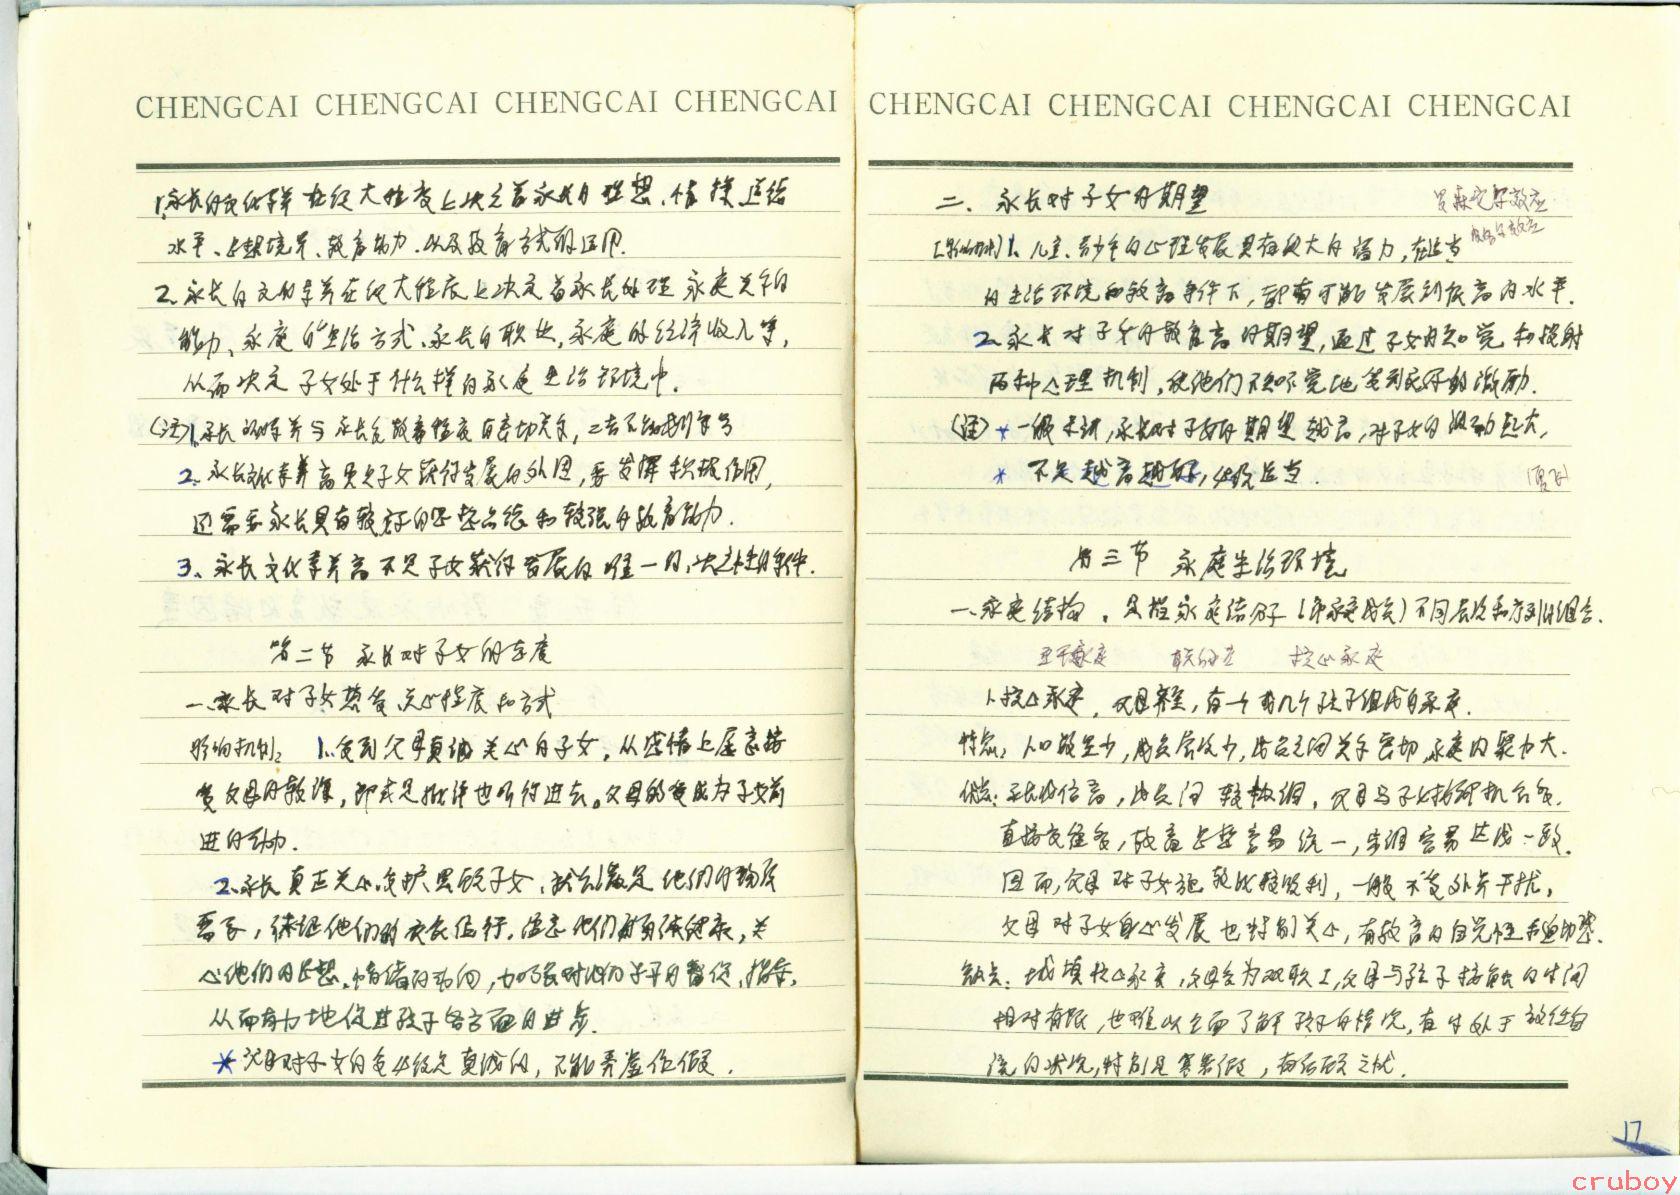 CHENGCAI CHENGCAI CHENGCAI CHENGCAI
1.家长的文化素养在很大程度上决定着家长的理想、情操、道德
水平、思想境界、教育能力、以及教育方式的运用.
2、家长的文化素养在很大程度上决定着家长处理家庭关系的
能力、家庭的生活方式、家长的职业,家庭的经济收入等,
从而决定子女处于什么样的家庭生活环境中.
(注)1.家长的素养与家长受教育程度有密切关系,二者不能划等号
2、家长文化素养高只是子女获得发展的外因,要发挥积极作用,
还需要家长具有较好的思想品德和较强的教育能力.
3、家长文化素养高不是子女获得发展的唯一的,决定性的条件.
第二节 家长对子女的态度
一、家长对子女热爱、关心程度和方式
影响机制: 1.受到父母真诚关心的子女,从感情上愿意接
受父母的教诲,即或是批评也听得进去。父母的爱成为子女前
进的动力.
2.家长真正关心、爱护、照顾子女,就会满足他们的物质
需要,保证他们的衣食住行,注意他们的身体健康,关
心他们的思想、情绪的动向,加强对他们学习的督促、指导,
从而有力地促进孩子各方面的进步.
* 父母对子女的爱必须是真诚的,不能弄虚作假.
CHENGCAI CHENGCAI CHENGCAI CHENGCAI
二、家长对子女的期望 罗森塔尔效应
[影响机制] 1、儿童、青少年的心理发展具有很大的潜力,在适当
的生活环境和教育条件下,都有可能发展到很高的水平.
2、家长对子女的教育高的期望,通过子女的知觉和投射
两种心理机制,使他们不知不觉地受到良好的激励.
(注) * 一般来讲,家长对子女的期望越高,对子女的激励越大,
* 不是越高越好,必须适当.
第三节 家庭生活环境
一、家庭结构。是指家庭结构分子(即家庭成员)不同层次和序列的组合.
主干家庭 联合家庭 核心家庭
1.核心家庭,父母健在,有一个或几个孩子组成的家庭.
特点:人口数量少,成员层次少,成员之间关系密切,家庭内聚力大.
优点: 成员间较协调,父母与子女接触机会多,
直接交往多,教育思想容易统一,步调容易达成一致.
因而,父母对子女施教比较顺利,一般不受外界干扰,
父母对子女身心发展也特别关心,有教育的自觉性和迫切感.
缺点:城镇核心家庭,父母多为双职工,父母与孩子接触的时间
相对有限,也难以全面了解孩子的情况,有时处于放任自
流的状况,特别是寒暑假,有后顾之忧.
17
cruboy